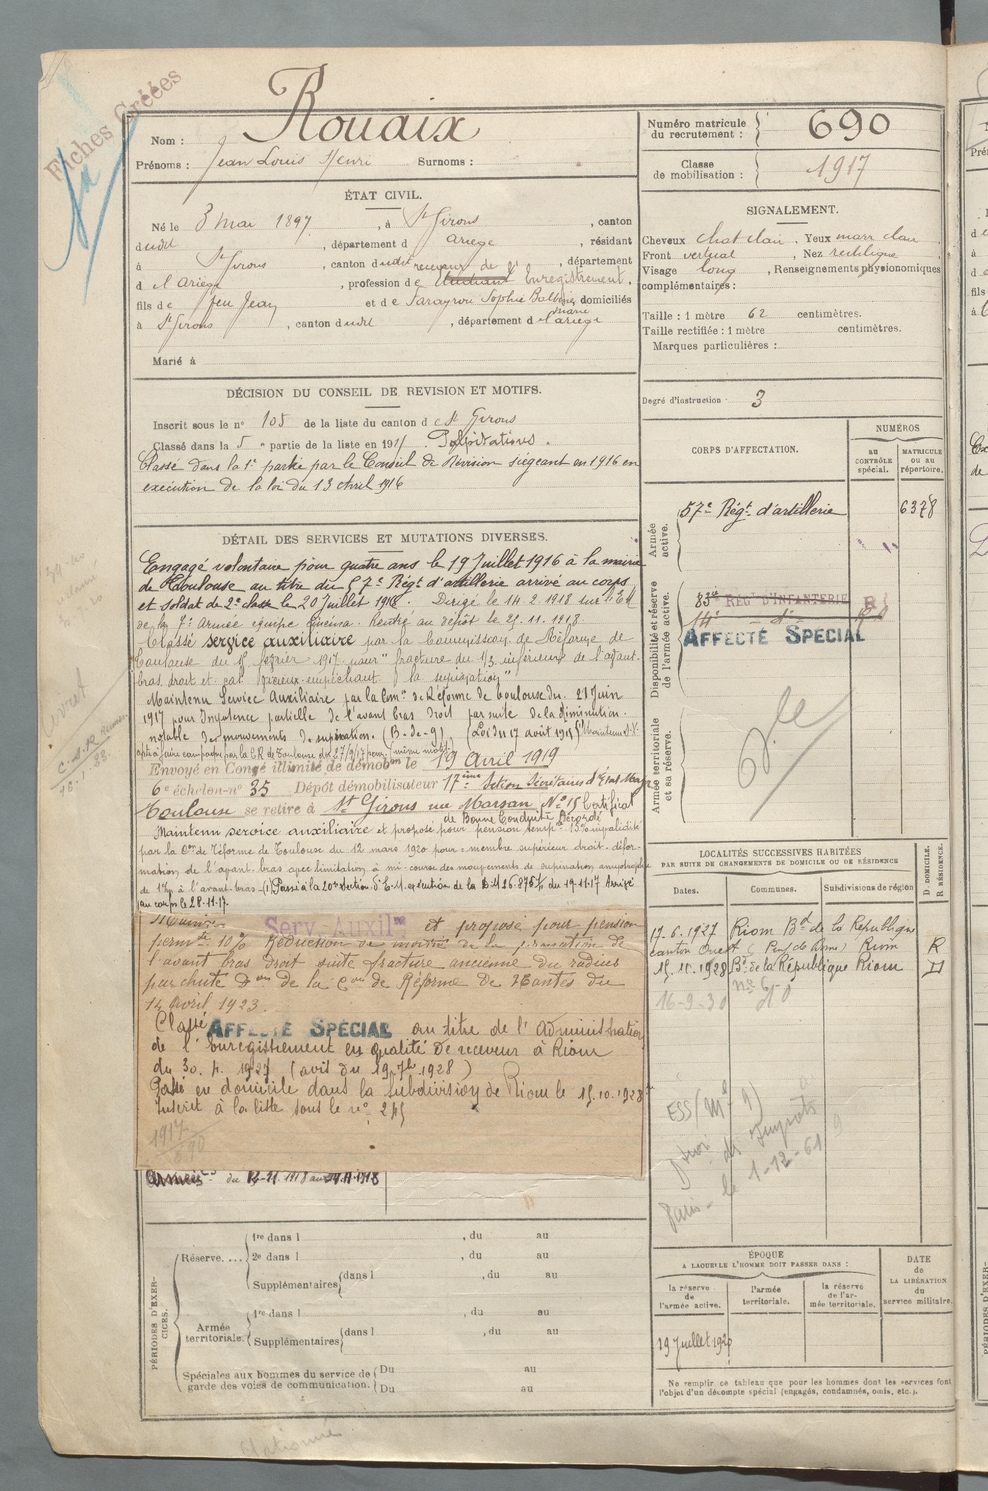 Fiches Créées
Rouaix
Nom :
Prénoms : Jean Louis Henri Surnoms :
Numéro matricule du recrutement : 690
Classe de mobilisation : 1917
ÉTAT CIVIL.
Né le 3 mai 1897, à St Girons, canton
dudit, département d Ariège, résidant
à St Girons, canton dudit, département
d e l'Ariège, profession de Étudiant receveur de l'Enregistrement,
fils de feu Jean et de Sarayrou Sophie Balbine Marie domiciliés
à St Girons, canton dudit, département de l'Ariège
Marié à
SIGNALEMENT.
Cheveux chat clair. Yeux marr clair
Front vertical, Nez rectiligne
Visage long, Renseignements physionomiques
complémentaires :
Taille : 1 mètre 62 centimètres.
Taille rectifiée : 1 mètre centimètres.
Marques particulières :
Degré d'instruction : 3
DÉCISION DU CONSEIL DE REVISION ET MOTIFS.
Inscrit sous le n° 105 de la liste du canton de St Girons
Classé dans la 5e partie de la liste en 191 . Palpitations.
Classé dans la 1e partie par le Conseil de Révision siégeant en 1916 en
exécution de la loi du 13 Avril 1916
CORPS D'AFFECTATION.
NUMÉROS
AU CONTRÔLE spécial.
MATRICULE OU AU répertoire.
Armée active.
57e Régt d'artillerie 6378
Disponibilité et réserve de l'armée active.
83e REGt D'INFANTERIE
14e - d° -
AFFECTÉ SPÉCIAL
Armée territoriale et sa réserve.
DÉTAIL DES SERVICES ET MUTATIONS DIVERSES.
Engagé volontaire pour quatre ans le 19 Juillet 1916 à la mairie
de Toulouse au titre du 57e Régt d'artillerie arrivé au corps
et soldat de 2e classe le 20 Juillet 1916. Dirigé le 14.2.1918 sur l'E.M
de la 7e Armée équipe Cinéma. Rentré au dépôt le 25.11.1918
Classé service auxiliaire par la Commission de Réforme de
Toulouse du février 1917 pour "fracture du 1/3 inférieur de l'avant
bras droit et cal vicieux empêchant la supination"
Maintenu Service Auxiliaire par la Comon de Réforme de Toulouse du 21 Juin
1917 pour Impotence partielle de l'avant bras droit par suite de la diminution
notable des mouvements de supination. (B-de-g) (Loi du 17 août 1915)
Envoyé en Congé illimité de démobon le 19 Avril 1919
6e échelon-n° 35 Dépôt démobilisateur 17ème Section Secrétaires d'État Major
Toulouse se retire à St Girons rue Marsan N° 15 Certificat
de Bonne Conduite Accordé
Maintenu service auxiliaire et proposé pour pension temp. 15% invalidité
par la Con de réforme de Toulouse du 12 mars 1920 pour : membre supérieur droit. défor-
mation de l'avant-bras avec limitation à mi-course des mouvements de supination amyotrophie
de 1% à l'avant-bras (1) Passé à la 20e Section d'E.M. exécution de la D.M 26.875 du 19.11.17 Arrivé
au corps le 28.11.17.
Maintenu Serv. Auxilre et proposé pour pension
permte 10% Réduction de moitié de la pronation de
l'avant bras droit suite fracture ancienne du radius
par chute Don de la Con de Réforme de Nantes du
14 avril 1923.
Classé AFFECTÉ SPÉCIAL au titre de l'Administration
de l'Enregistrement en qualité de receveur à Riom
du 30. 1927 (avis du 19 7bre 1928)
Passé en domicile dans la subdivision de Riom le 15.10.1928
Inscrit à la liste sous le n° 245
1917
690
Armées du 14-2-1918 au 24.11.1918
LOCALITÉS SUCCESSIVES HABITÉES
PAR SUITE DE CHANGEMENTS DE DOMICILE OU DE RÉSIDENCE
Dates. Communes. Subdivisions de région
D. DOMICILE. R. RÉSIDENCE.
17.6.1927 Riom Bd de la République
canton Ouest (Puy de Dôme) Riom R
15.10.1928 Bd de la République Riom D
n° 6
16-9-30 d°
Paris - le 1-12-61
PÉRIODES D'EXERCICES.
Réserve. ... 1re dans l , du au
2e dans l , du au
Supplémentaires dans l , du au
Armée territoriale. 1re dans l , du au
Supplémentaires dans l , du au
Spéciales aux hommes du service de garde des voies de communication. Du au
Du au
ÉPOQUE
A LAQUELLE L'HOMME DOIT PASSER DANS :
la réserve de l'armée active.
l'armée territoriale.
la réserve de l'armée territoriale.
DATE de LA LIBÉRATION du service militaire.
19 Juillet 1920
Ne remplir ce tableau que pour les hommes dont les services font
l'objet d'un décompte spécial (engagés, condamnés, omis, etc.).